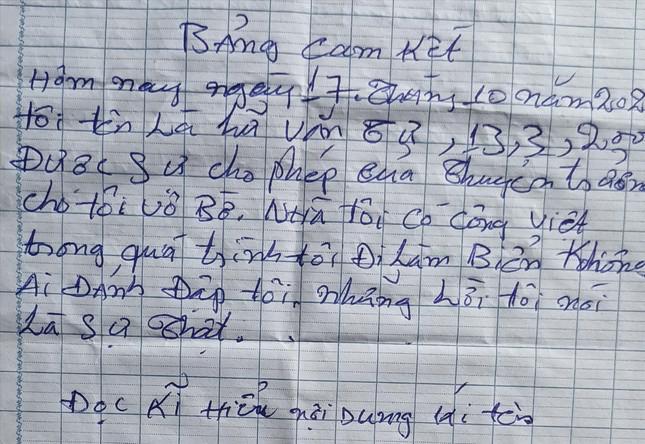 Bảng cam kết
Hôm nay ngày 17. tháng 10 năm 202
tôi tên Là hà văn , 13, 3, 200
Được sự cho phép của thuyền trưởn
cho tôi vô Bờ. Nhà tôi có công việt
trong quá trình tôi Đi Làm Biển Không
Ai Đánh Đập tôi. nhằng Lời tôi nói
Là Sự thật.
Đọc kĩ Hiểu nội Dung kí tên